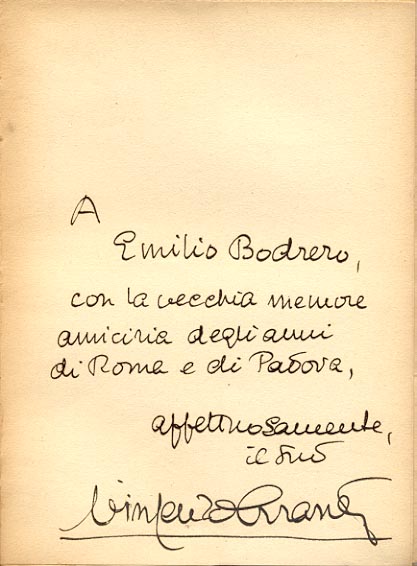 A
Emilio Bodrero,
con la vecchia memore
amicizia degli anni
di Roma e di Padova,
affettuosamente,
il suo
Vincenzo